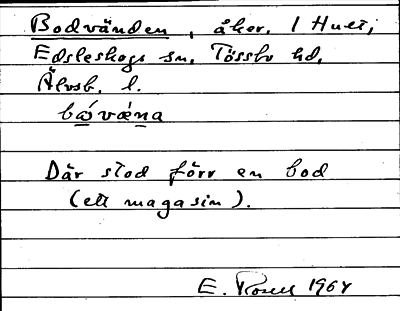 Bodvänden, åker. 1 Hult,
Edsleskogs sn. Tössbo hd,
Älvsb. l.
bǻvǽna
Där stod förr en bod
(ett magasin).
E. 1964